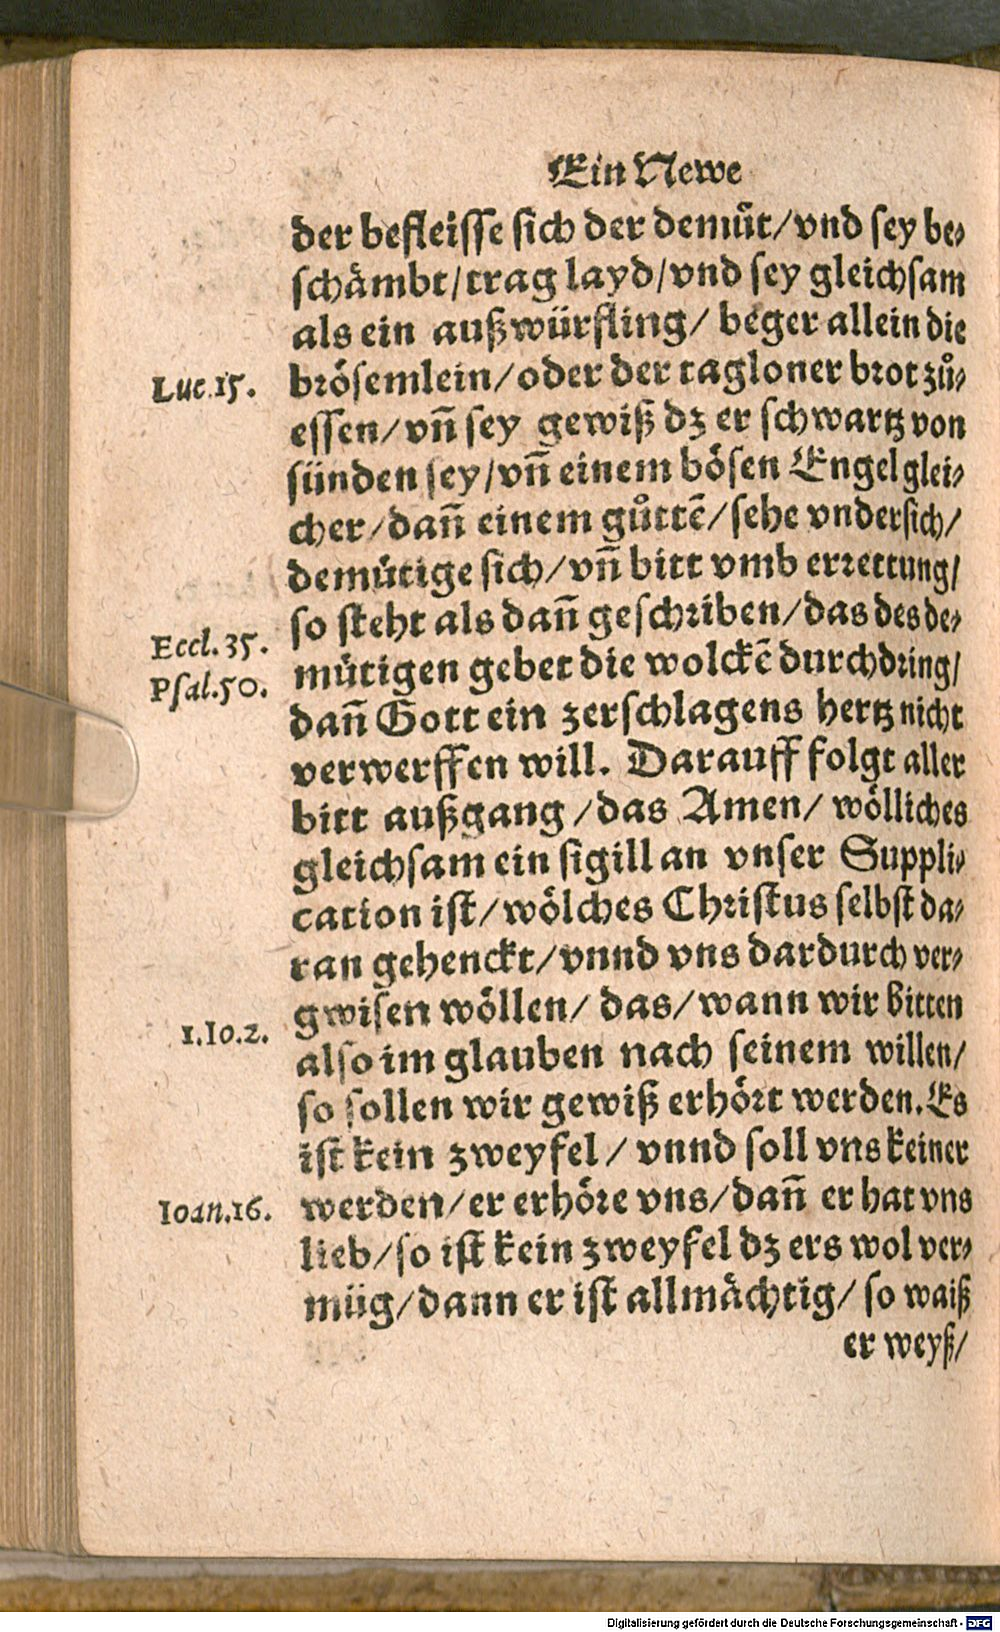 Ein Newe
der befleisse sich der demuͤt/vnd sey be⸗
schaͤmbt/trag layd/vnd sey gleichsam
als ein außwürfling/ beger allein die
Luc.15. broͤsemlein/oder der tagloner brot zů⸗
essen/vñ sey gewiß dz er schwartz von
sünden sey/vñ einem boͤsen Engel glei⸗
cher/dañ einem gůttẽ/sehe vndersich/
demuͤtige sich/vñ bitt vmb errettung/
so steht als dañ geschriben/das des de⸗
Eccl.35.
muͤtigen gebet die wolckẽ durchdring/
Psal.50.
dañ Gott ein zerschlagens hertz nicht
verwerffen will. Darauff folgt aller
bitt außgang /das Amen/ woͤlliches
gleichsam ein sigill an vnser Suppli⸗
cation ist/woͤlches Christus selbst da⸗
ran gehenckt/vnnd vns dardurch ver⸗
gwisen woͤllen/ das/wann wir bitten
1.Io.2.
also im glauben nach seinem willen/
so sollen wir gewiß erhoͤrt werden.Es
ist kein zweyfel/ vnnd soll vns keiner
Ioan.16. werden/er erhoͤre vns/dañ er hat vns
lieb/so ist kein zweyfel dz ers wol ver⸗
müg/dann er ist allmaͤchtig/ so waiß
er weyß/
Digitalisierung gefördert durch die Deutsche Forschungsgemeinschaft - DFG